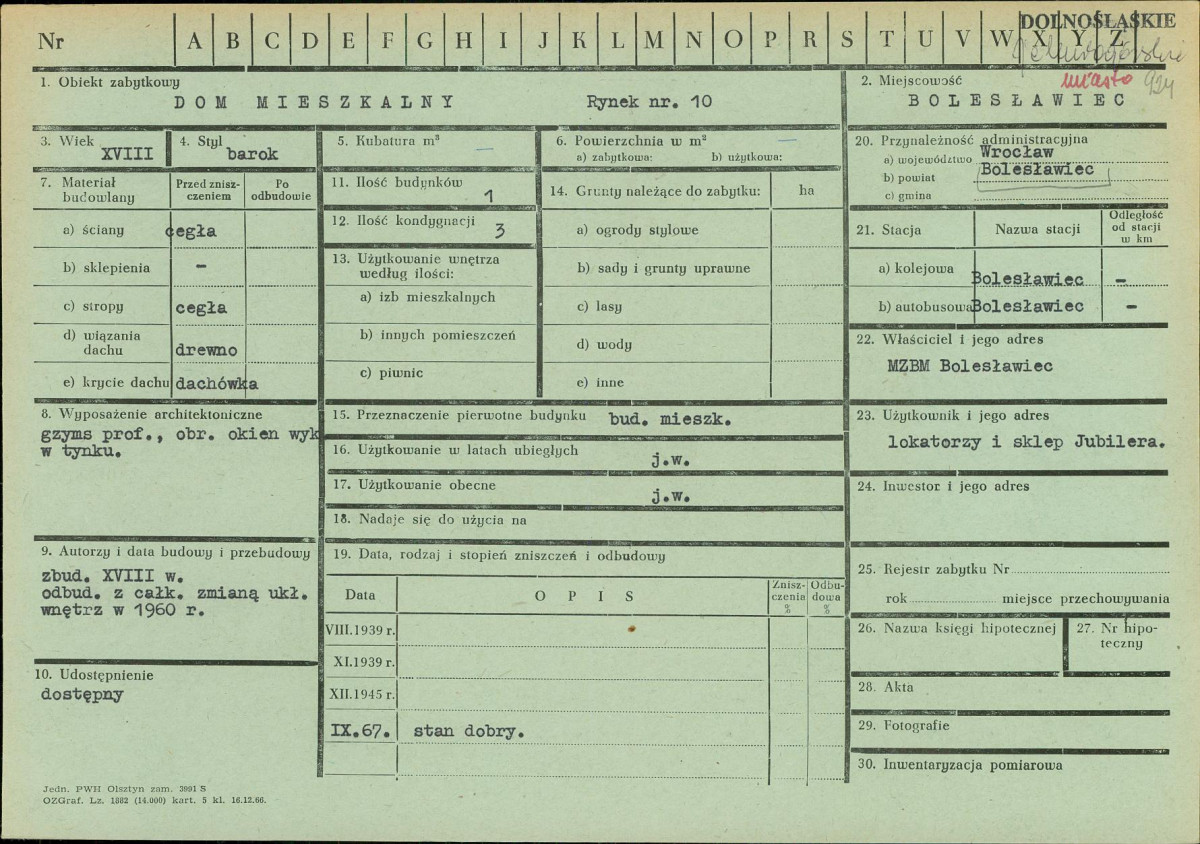 DOLNOŚLĄSKIE
Nr A B C D E F G H I J K L M N O P R S T U V W X Y Z
miasto 924
1. Obiekt zabytkowy
DOM MIESZKALNY Rynek nr. 10
2. Miejscowość
BOLESŁAWIEC
3. Wiek
XVIII
4. Styl
barok
5. Kubatura m³
—
6. Powierzchnia w m² —
a) zabytkowa: b) użytkowa:
7. Materiał budowlany
Przed zniszczeniem
Po odbudowie
a) ściany cegła
b) sklepienia –
c) stropy cegła
d) wiązania dachu drewno
e) krycie dachu dachówka
8. Wyposażenie architektoniczne
gzyms prof., obr. okien wyk
w tynku.
9. Autorzy i data budowy i przebudowy
zbud. XVIII w.
odbud. z całk. zmianą ukł.
wnętrz w 1960 r.
10. Udostępnienie
dostępny
11. Ilość budynków
1
12. Ilość kondygnacji
3
13. Użytkowanie wnętrza
według ilości:
a) izb mieszkalnych
b) innych pomieszczeń
c) piwnic
14. Grunty należące do zabytku: ha
a) ogrody stylowe
b) sady i grunty uprawne
c) lasy
d) wody
e) inne
15. Przeznaczenie pierwotne budynku bud. mieszk.
16. Użytkowanie w latach ubiegłych j.w.
17. Użytkowanie obecne j.w.
18. Nadaje się do użycia na
19. Data, rodzaj i stopień zniszczeń i odbudowy
Data OPIS Zniszczenia % Odbudowa %
VIII.1939 r.
XI.1939 r.
XII.1945 r.
IX.67. stan dobry.
20. Przynależność administracyjna
a) województwo Wrocław
b) powiat Bolesławiec
c) gmina
21. Stacja Nazwa stacji Odległość od stacji w km
a) kolejowa Bolesławiec –
b) autobusowa Bolesławiec –
22. Właściciel i jego adres
MZBM Bolesławiec
23. Użytkownik i jego adres
lokatorzy i sklep Jubilera.
24. Inwestor i jego adres
25. Rejestr zabytku Nr
rok miejsce przechowywania
26. Nazwa księgi hipotecznej
27. Nr hipo-
teczny
28. Akta
29. Fotografie
30. Inwentaryzacja pomiarowa
Jedn. PWH Olsztyn zam. 3991 S
OZGraf. Lz. 1882 (14.000) kart. 5 kl. 16.12.66.